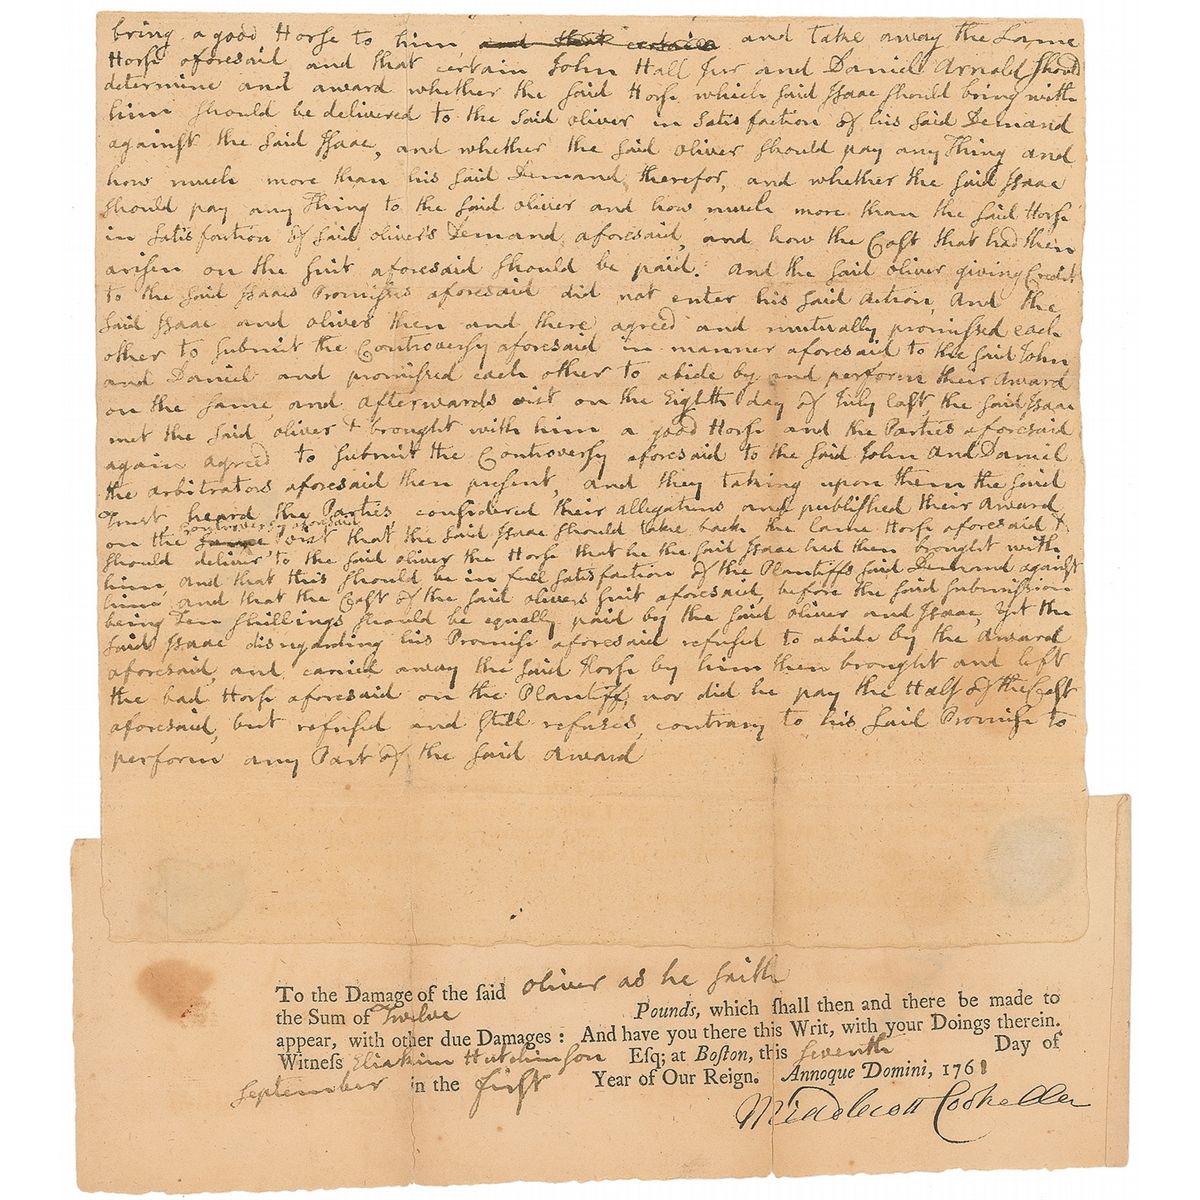 bring a good Horse to him and that certain and take away the Lame
Horse aforesaid and that certain John Hall Jur and Daniel Arnold should
determine and award whether the said Horse which said Isaac should bring with
him should be delivered to the said oliver in satisfaction of his said Demand
against the said Isaac, and whether the said oliver should pay any Thing and
how much more than his said Demand, therefor, and whether the said Isaac
should pay any Thing to the said oliver and how much more than the said Horse
in satisfaction of said oliver's Demand aforesaid, and how the Cost that had then
arisen on the suit aforesaid should be paid. and the said oliver giving Credit
to the said Isaacs Promises aforesaid did not enter his said action, and the
said Isaac and oliver then and there agreed and mutually promised each
other to submit the Controversy aforesaid in manner aforesaid to the said John
and Daniel and promised each other to abide by and perform their award
on the same, and afterwards vist on the Eighth day of July last, the said Isaac
met the said oliver & brought with him a good Horse and the Parties aforesaid
again agreed to submit the Controversy aforesaid to the said John and Daniel
the arbitrators aforesaid then present, and they taking upon them the said
Trust, heard the Parties, considered their allegations and published their award
controversy aforesaid
on the same vist that the said Isaac should take back the lame Horse aforesaid &
should deliver to the said oliver the Horse that he the said Isaac had then brought with
him, and that this should be in full satisfaction of the Plantiffs said Demand against
him, and that the Cost of the said olivers suit aforesaid, before the said submission
being Ten shillings should be equally paid by the said oliver and Isaac, yet the
said Isaac disregarding his Promise aforesaid refused to abide by the award
aforesaid, and carried away the said Horse by him then brought and left
the bad Horse aforesaid on the Plantiff, nor did he pay the Half of the Cost
aforesaid, but refused and still refuses, contrary to his said Promise to
perform any Part of the said award
To the Damage of the said oliver as he saith
the Sum of Twelve Pounds, which shall then and there be made to
appear, with other due Damages: And have you there this Writ, with your Doings therein.
Witness Eliakim Hutchinson Esq; at Boston, this seventh Day of
September in the first Year of Our Reign. Annoque Domini, 1761
Middlecott Cooke Cler